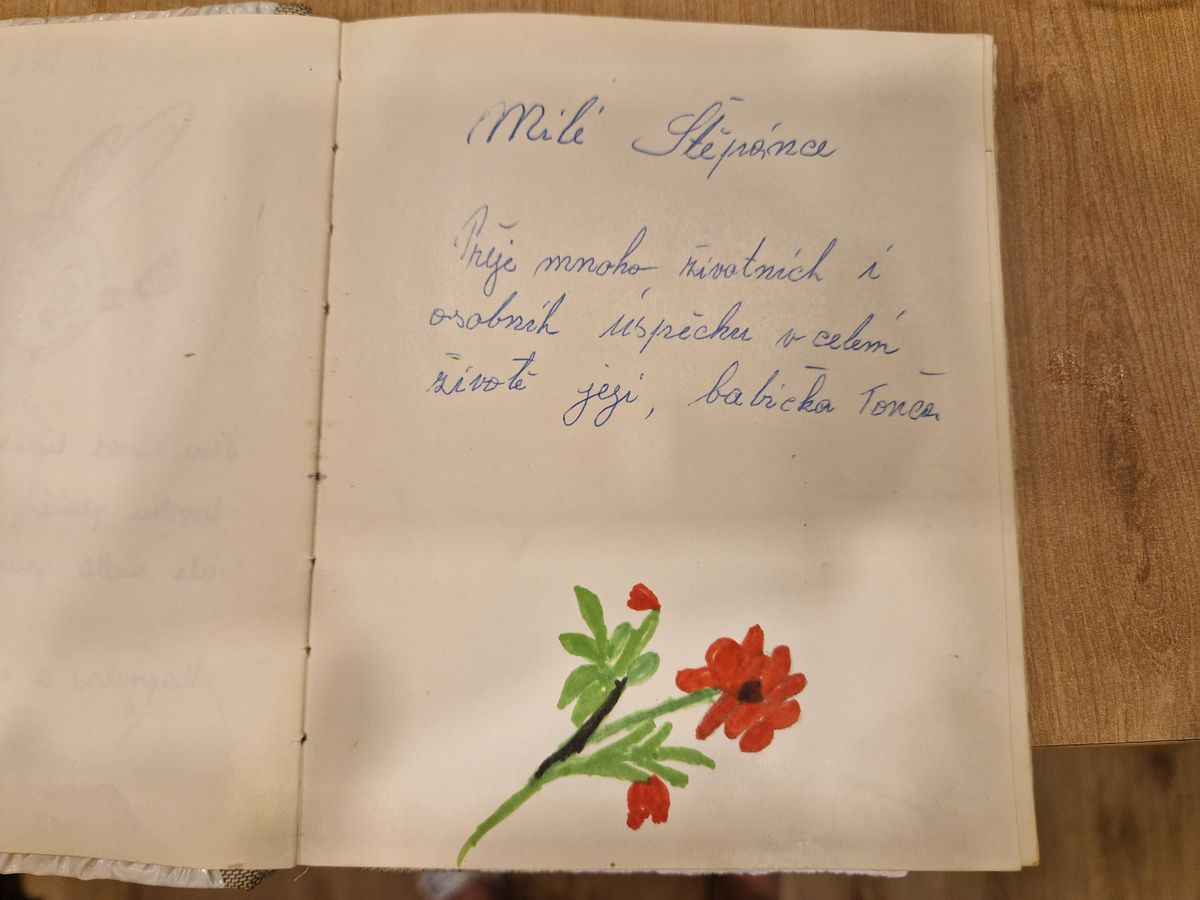 Milé Štěpánce
Přeje mnoho životních i
osobníh úspěchu v celém
životě jeji, babička Tonča.